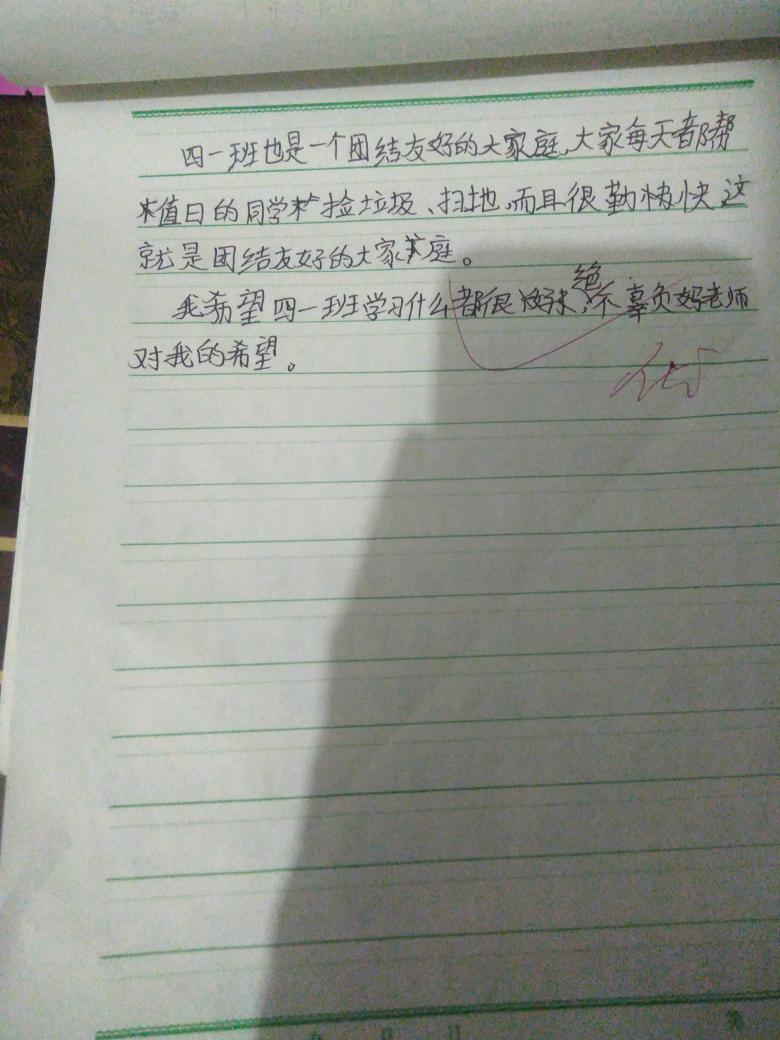 四一班也是一个团结友好的大家庭,大家每天都帮
值日的同学捡垃圾、扫地,而且很勤快这
就是团结友好的大家庭。
我希望四一班学习什么都很好,绝不辜负妈老师
对我的希望。